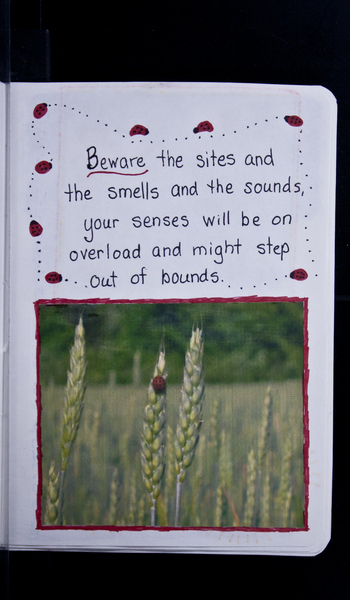 Beware the sites and
the smells and the sounds,
your senses will be on
overload and might step
out of bounds.